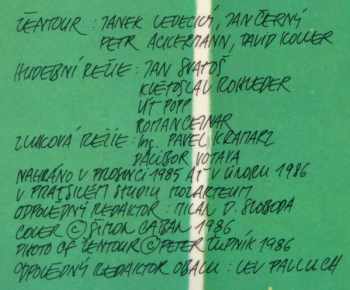 ŽENTOUR : JANEK LEDECKÝ, JAN ČERNÝ
PETR ACKERMANN, DAVID KOLLER
HUDEBNÍ REŽIE : JAN SVATOŠ
KVĚTOSLAV ROHLEDER
VÍT POPP
ROMAN CEJNAR
ZVUKOVÁ REŽIE : Ing. PAVEL KRAMARZ
DALIBOR VOTAVA
NAHRÁNO V PROSINCI 1985 AŽ V ÚNORU 1986
V PRAŽSKÉM STUDIU MOZARTEUM
ODPOVĚDNÝ REDAKTOR : MILAN D. SLOBODA
COVER © SIMON CABAN 1986
PHOTO OF ŽENTOUR © PETER ŽUPNÍK 1986
ODPOVĚDNÝ REDAKTOR OBALU : LEV PALLUCH